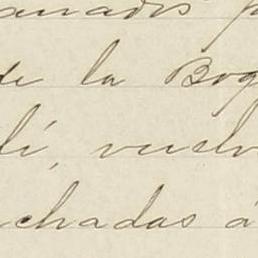 anados p
de la Bog
lí, vuelv
chadas á